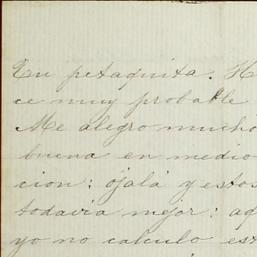 Tu petaquita. H
ce muy probable
Me alegro mucho
buena en medio
cion: ojalá y estos
todavia mejor: aq
yo no calculo est